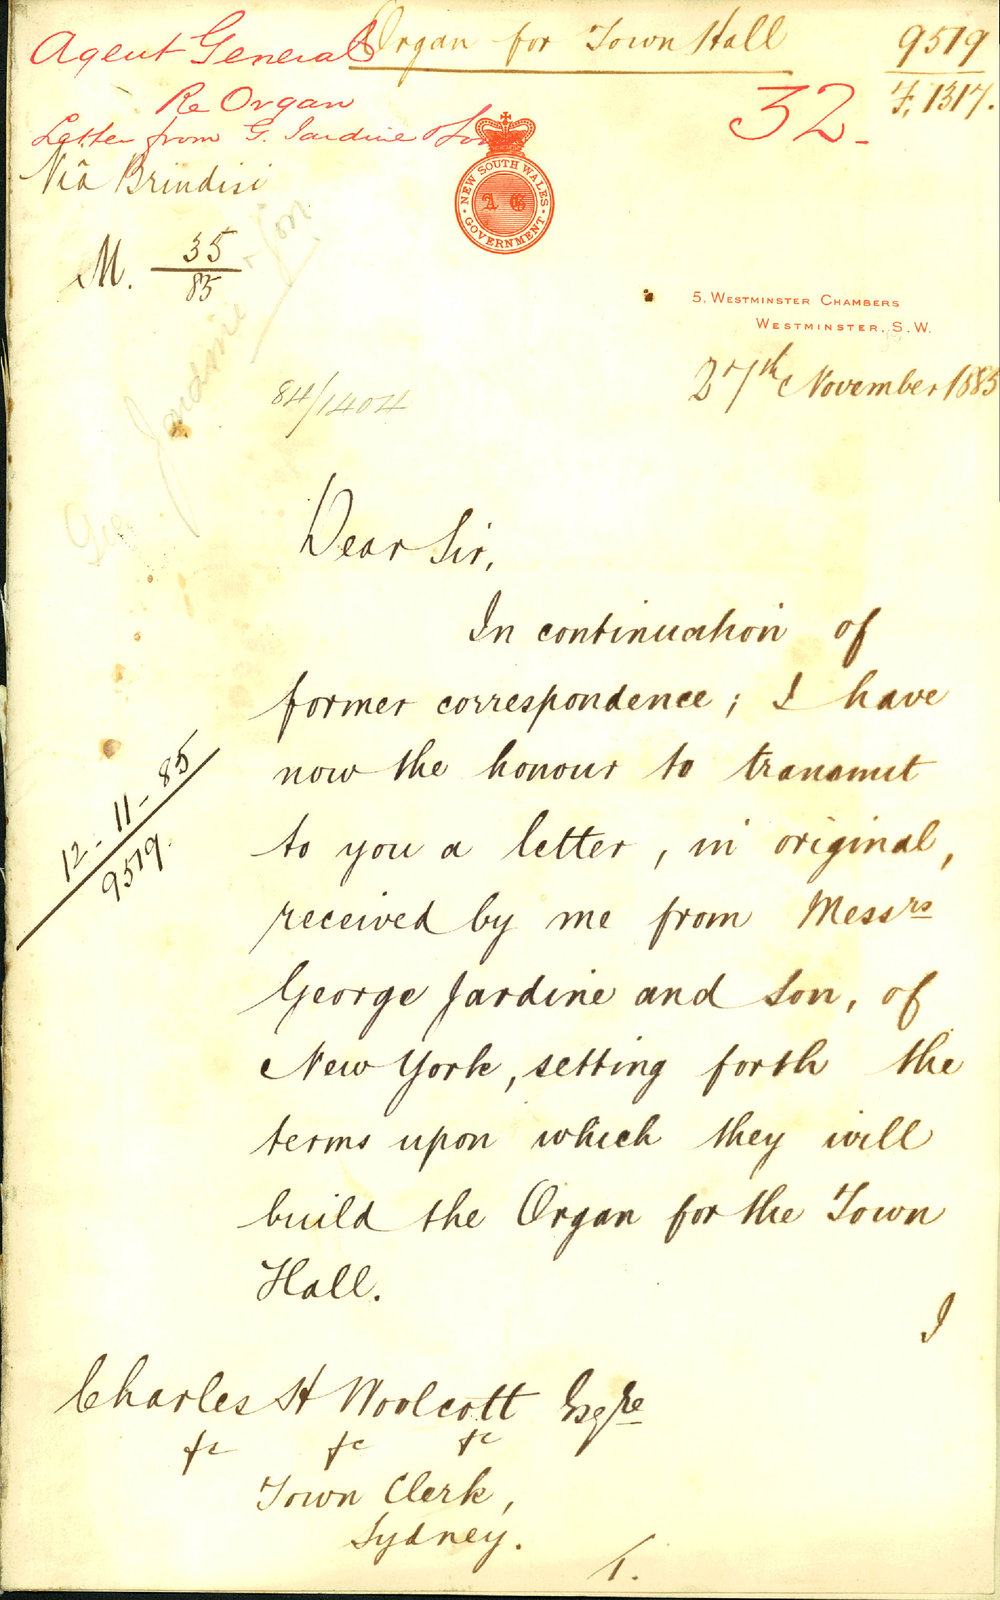 Agent General
Organ for Town Hall
9519
F. 1317.
Re Organ
32.
Letter from G. Jardine & Son
Viâ Brindisi
NEW SOUTH WALES
A G
GOVERNMENT
M. 35
85
5, WESTMINSTER CHAMBERS
WESTMINSTER, S.W.
27th November 1885
84/1404
Geo Jardine & Son
Dear Sir,
In continuation of
former correspondence; I have
now the honour to transmit
to you a letter, in original,
received by me from Messrs
George Jardine and Son, of
New York, setting forth the
terms upon which they will
build the Organ for the Town
Hall.
I
12-11-85
9519.
Charles H Woolcott Esqre
&c &c &c
Town Clerk,
Sydney.
1.